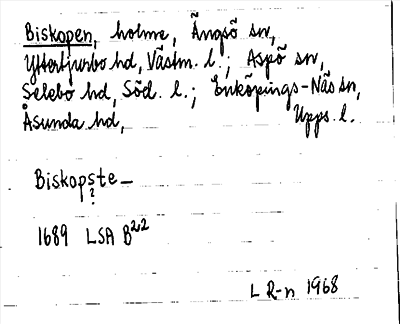 Biskopen, holme, Ängsö sn,
Yttertjurbo hd, Västm. l.; Aspö sn,
Selebo hd, Söd. l.; Enköpings-Näs sn,
Åsunda hd, Upps. l.
Biskopste—
?
1689 LSA B22
L R-n 1968